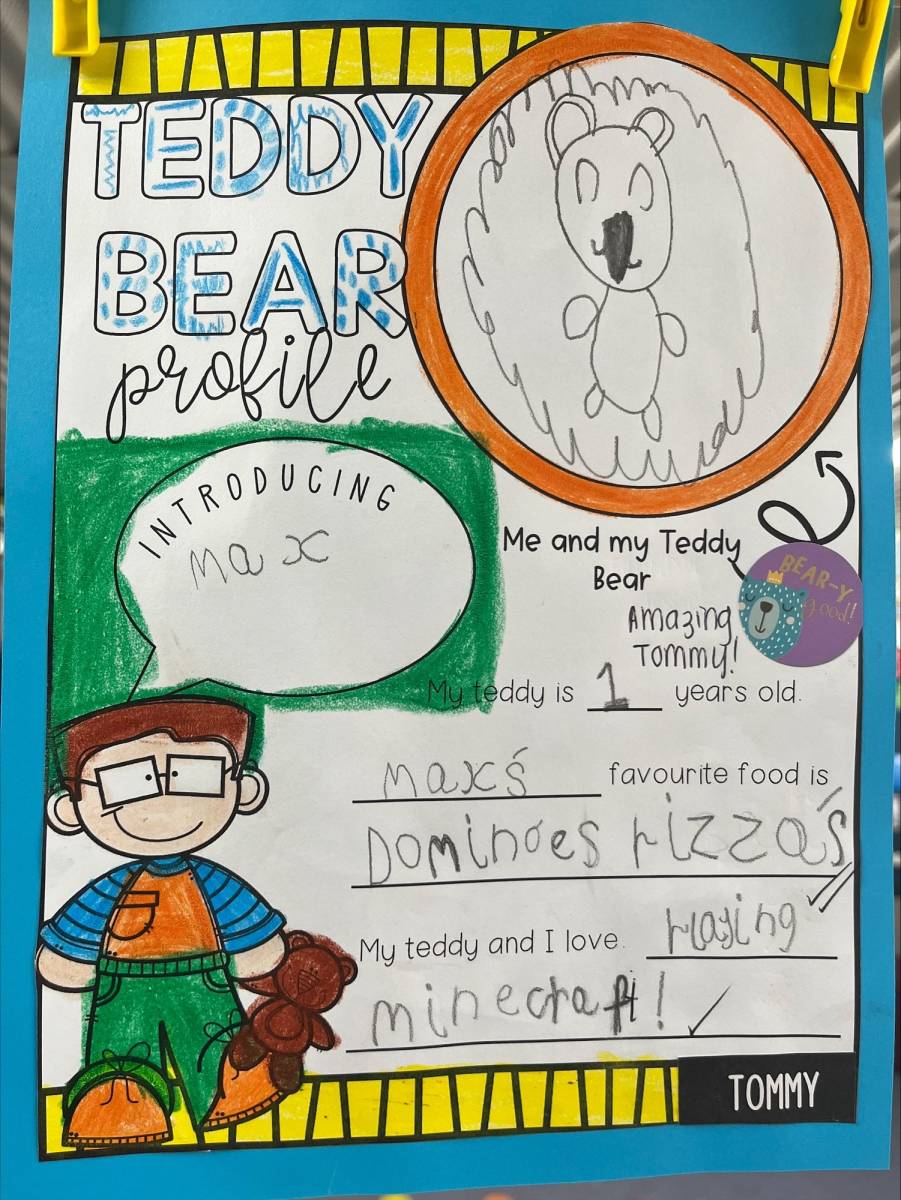 TEDDY
BEAR
profile
INTRODUCING
Max
Me and my Teddy
Bear
BEAR-Y
good!
Amazing
Tommy!
My teddy is 1 years old.
Maxś favourite food is
Dominóes Pizzaś
My teddy and I love Playing
minecraft!
TOMMY